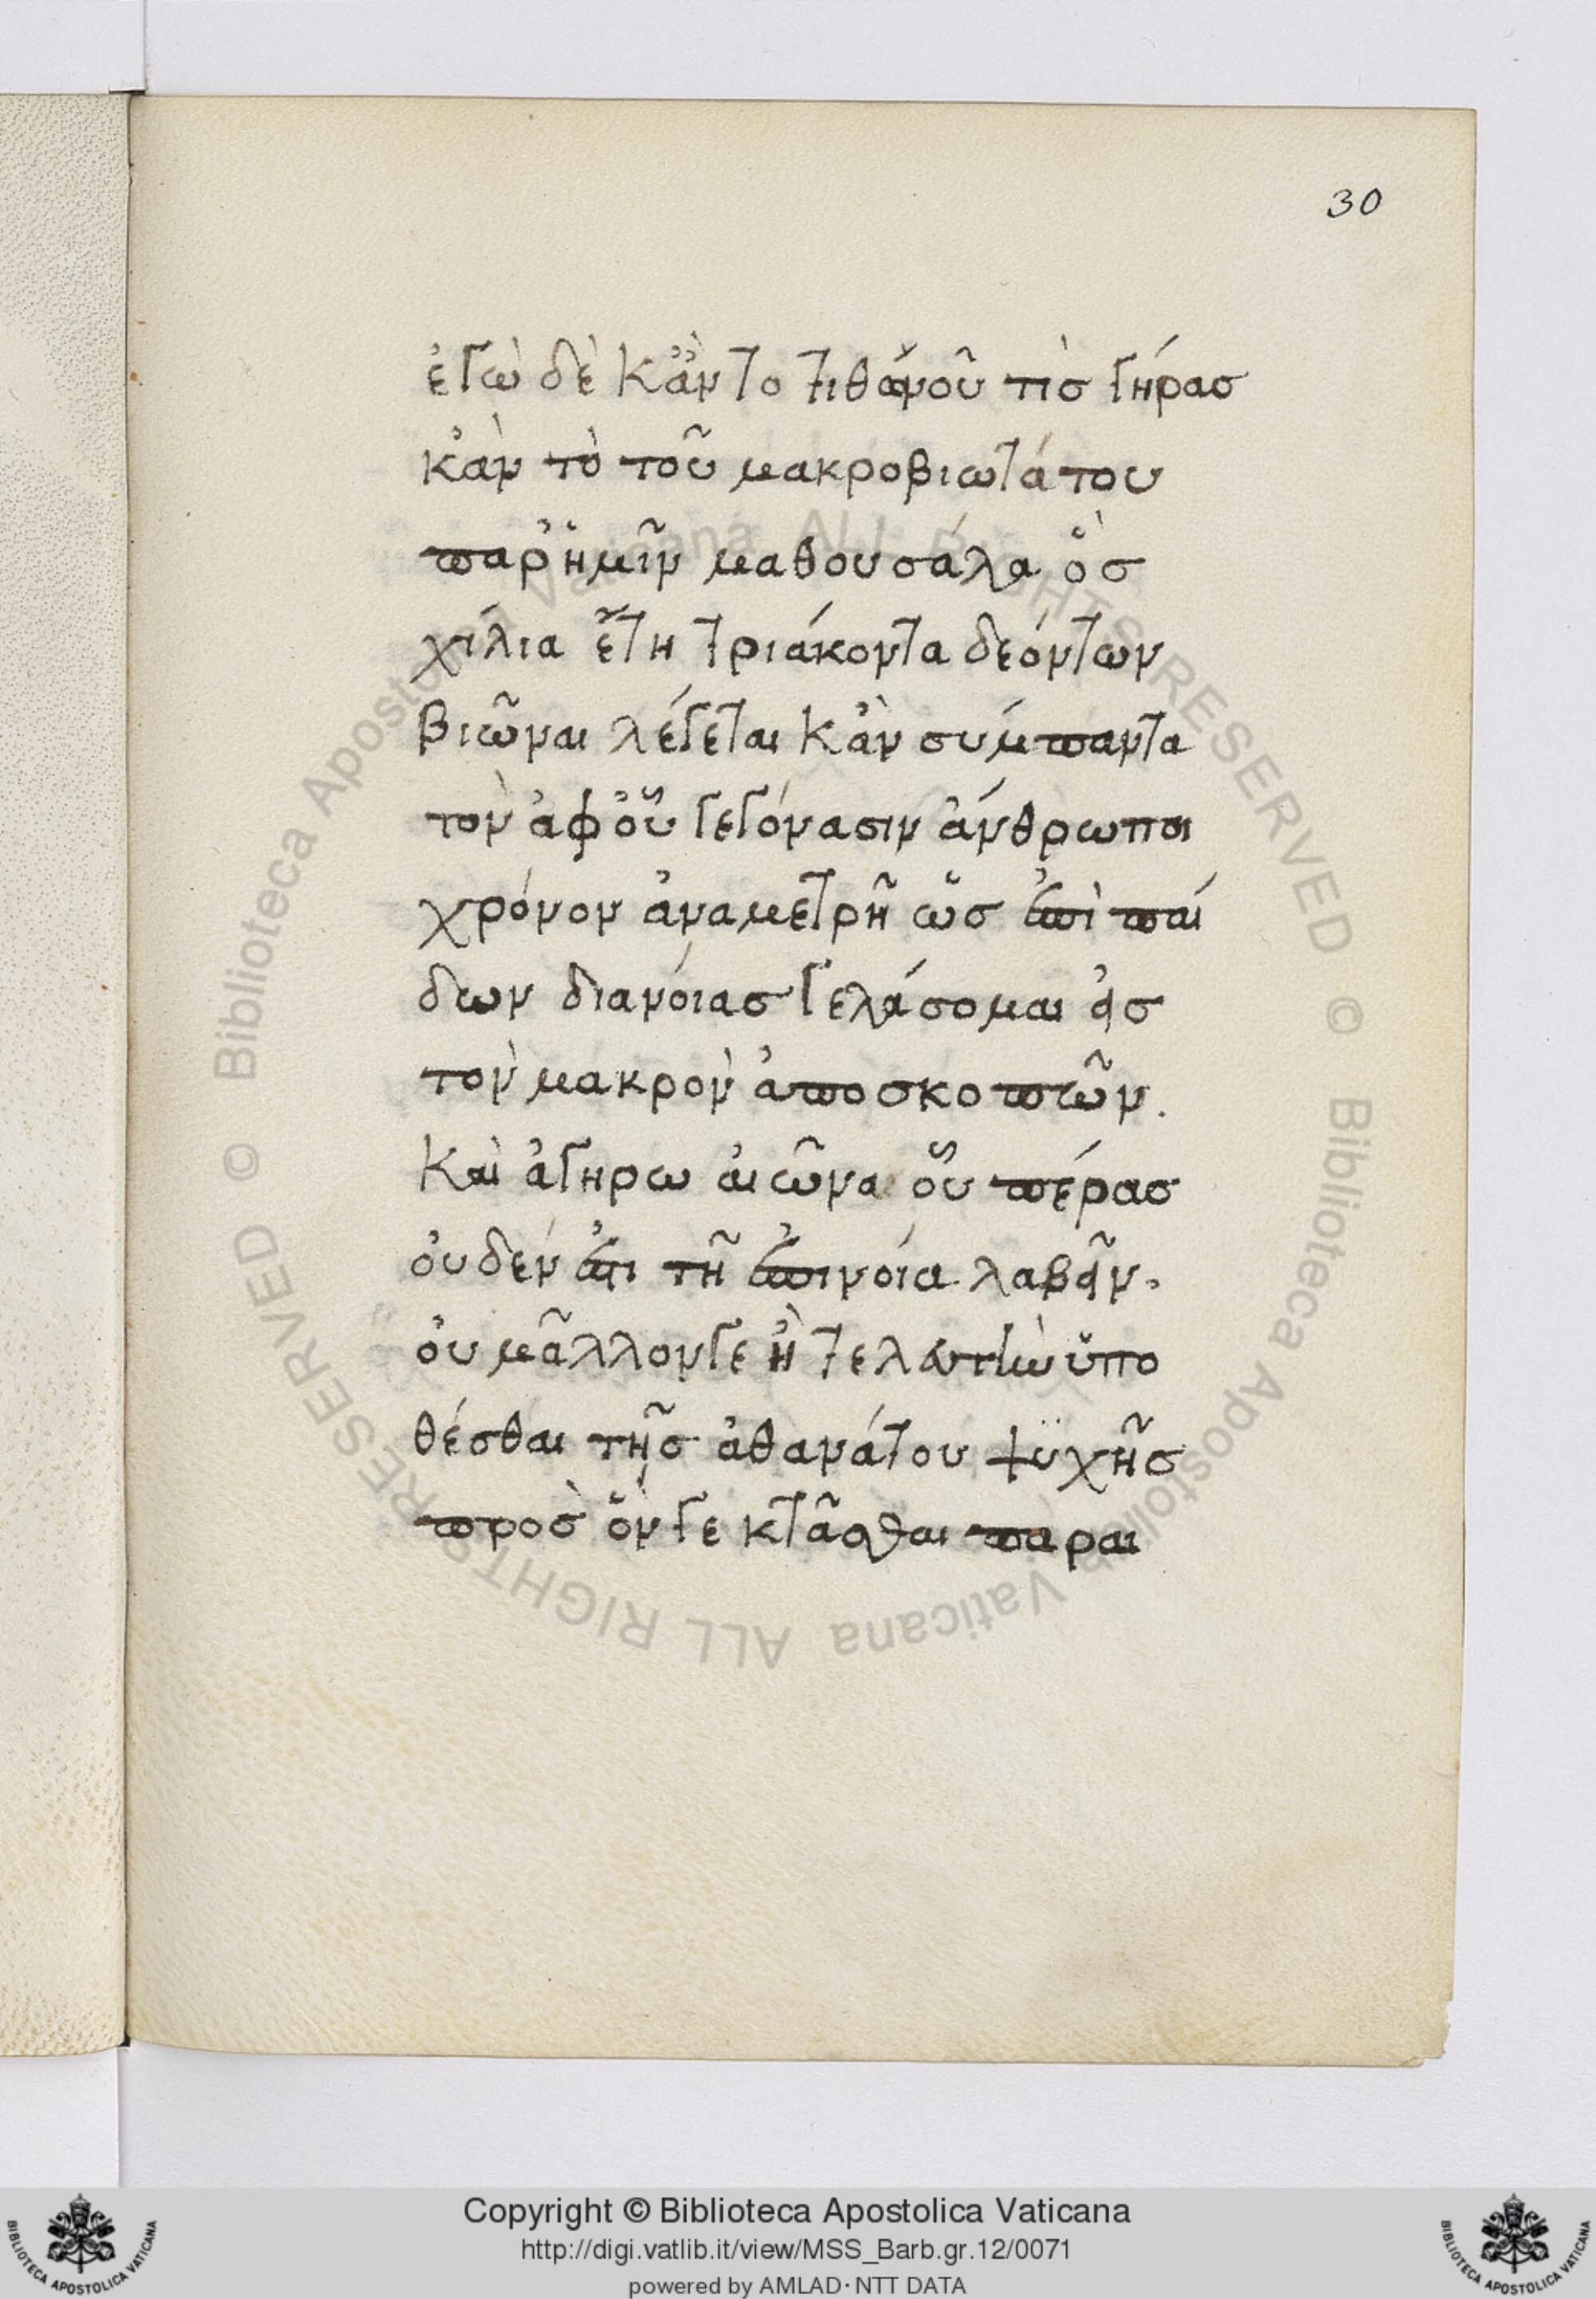 30
ἐγὼ δὲ κἂν το τιθωνοῦ τὶσ γήρασ
κἀν τὸ τοῦ μακροβιωτάτου
παρ' ἡμῖν μαθουσάλα ὃσ
χίλια ἔτη τριάκοντα δεόντων
βιῶναι λέγεται κἀν σύμπαντα
τὸν ἀφ' οὗ γεγόνασιν ἄνθρωποι
χρόνον ἀναμετρῆ ὡσ ἐπὶ παί
δων διανόιασ γελάσομαι εἰσ
τὸν μακρὸν ἀποσκοπῶν.
Καὶ ἀγηρω αἰῶνα οὗ πέρασ
οὐδέν ἐστι τῆ ἐπινοία λαβεῖν.
οὐ μᾶλλον γε ἢ τελευτὴν ὑπο
θέσθαι τῆσ ἀθανάτου ψυχῆσ
πρὸσ ὅν γε κτᾶσθαι παραι
Copyright © Biblioteca Apostolica Vaticana
http://digi.vatlib.it/view/MSS_Barb.gr.12/0071
powered by AMLAD·NTT DATA
© Biblioteca Apostolica Vaticana ALL RIGHTS RESERVED
© Biblioteca Apostolica Vaticana ALL RIGHTS RESERVED
BIBLIOTECA APOSTOLICA VATICANA
BIBLIOTECA APOSTOLICA VATICANA